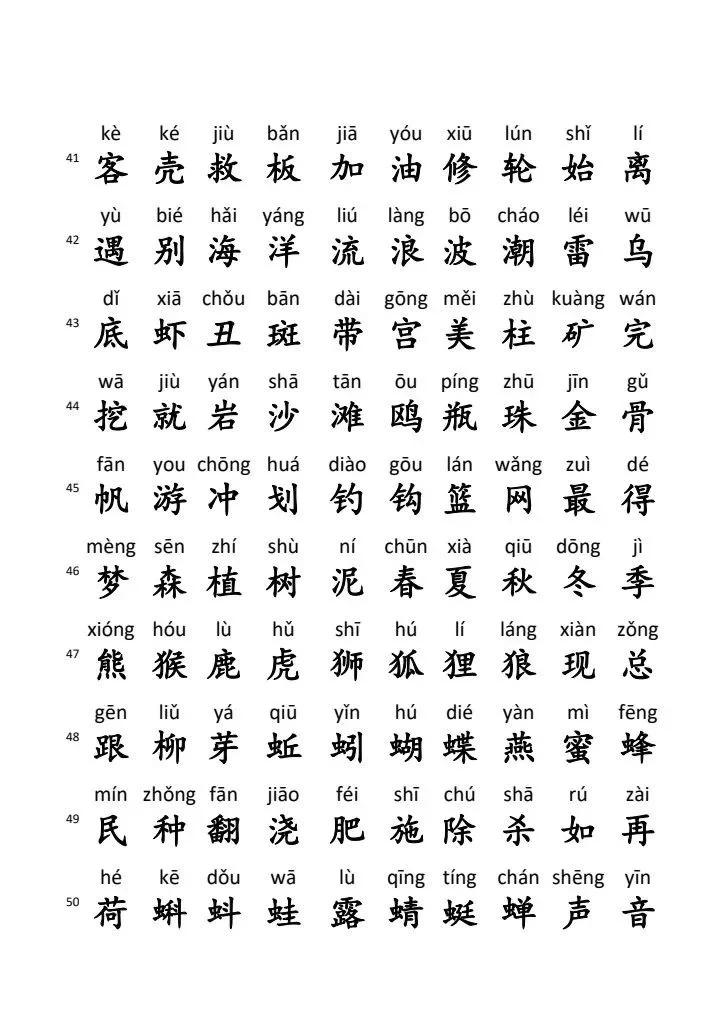 kè ké jiù bǎn jiā yóu xiū lún shǐ lí
41 客 壳 救 板 加 油 修 轮 始 离
yù bié hǎi yáng liú làng bō cháo léi wū
42 遇 别 海 洋 流 浪 波 潮 雷 乌
dǐ xiā chǒu bān dài gōng měi zhù kuàng wán
43 底 虾 丑 斑 带 宫 美 柱 矿 完
wā jiù yán shā tān ōu píng zhū jīn gǔ
44 挖 就 岩 沙 滩 鸥 瓶 珠 金 骨
fān you chōng huá diào gōu lán wǎng zuì dé
45 帆 游 冲 划 钓 钩 篮 网 最 得
mèng sēn zhí shù ní chūn xià qiū dōng jì
46 梦 森 植 树 泥 春 夏 秋 冬 季
xióng hóu lù hǔ shī hú lí láng xiàn zǒng
47 熊 猴 鹿 虎 狮 狐 狸 狼 现 总
gēn liǔ yá qiū yǐn hú dié yàn mì fēng
48 跟 柳 芽 蚯 蚓 蝴 蝶 燕 蜜 蜂
mín zhǒng fān jiāo féi shī chú shā rú zài
49 民 种 翻 浇 肥 施 除 杀 如 再
hé kē dǒu wā lù qīng tíng chán shēng yīn
50 荷 蝌 蚪 蛙 露 蜻 蜓 蝉 声 音